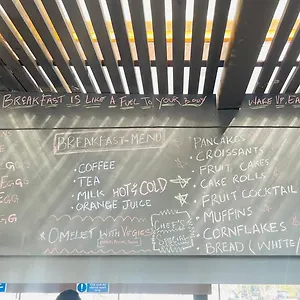 Breakfast is Like A Fuel To Your Body
Wake Up, Ea
Breakfast-Menu
• Coffee
• Tea
• Milk Hot & Cold
• Orange Juice
* Omelet with Veggies
Chef's
Special
Pancakes
• Croissants
• Fruit Cakes
• Cake Rolls
• Fruit Cocktail
• Muffins
• Cornflakes
• Bread (White